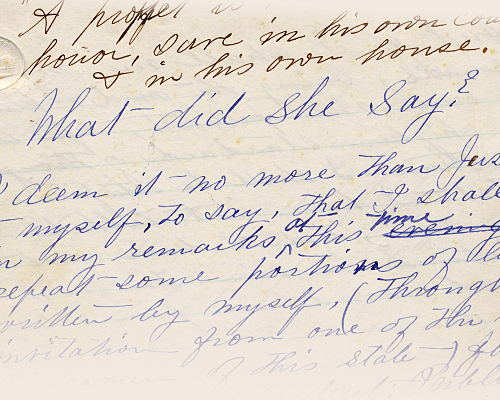 "A prophet is
honor, save in his own cou
& in his own house.
What did she say?
I deem it no more than Jus
myself, to say, that I shall
in my remarks at this time evening
repeat some portions of le
written by myself, (Through
invitation from one of the
of this state)